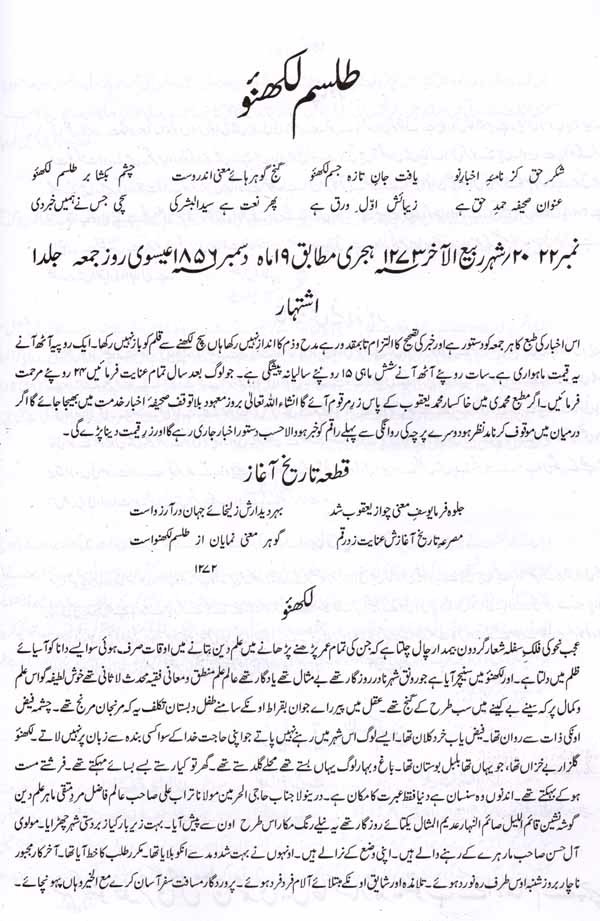 طلسم لکھنؤ
شکر حق کز نامہ اخبار نو یافت جان تازہ جسم لکھنؤ گنج گوہر ہائے معنی اندروست چشم بکشا بر طلسم لکھنؤ
عنوان صحیفہ حمد حق ہے زیبائش اوّل ورق ہے پھر نعت ہے سید البشر کی سچی جس نے ہمیں خبر دی
نمبر ۲۲ ۲۰/ شہر ربیع الآخر ۱۲۷۳ ہجری مطابق ۱۹ ماہ دسمبر ۱۸۵۶ عیسوی روز جمعہ جلد ۱
اشتہار
اس اخبار کی طبع کا ہر جمعہ کو دستور ہے اور خبر کی تصحیح کا التزام تا بمقدور ہے مدح و ذم کا انداز نہیں رکھا ہاں سچ لکھنے سے قلم کو باز نہیں رکھا۔ ایک روپیہ آٹھ آنے
یہ قیمت ماہواری ہے۔ سات روپئے آٹھ آنے شش ماہی ۱۵ روپئے سالیانہ پیشگی ہے۔ جو لوگ بعد سال تمام عنایت فرمائیں ۲۴ روپئے مرحمت
فرمائیں۔ اگر مطبع محمدی میں خاکسار محمد یعقوب کے پاس زر مرقوم آئے گا انشاء اللہ تعالیٰ بروز معہود بلا توقف صحیفۂ اخبار خدمت میں بھیجا جائے گا اگر
درمیان میں موقوف کرنا مدنظر ہو دوسرے پرچہ کی روانگی سے پہلے راقم کو خبر ہو والا حسب دستور اخبار جاری رہے گا اور زر قیمت دینا پڑے گی۔
قطعہ تاریخ آغاز
جلوہ فرما یوسف معنی چو از یعقوب شد بہر دیدارش زلیخائے جہان در آرزواست
مصرعہ تاریخ آغازش عنایت زد رقم گوہر معنی نمایان از طلسم لکھنؤ است
۱۲۷۲
لکھنؤ
عجب نحو کی فلک سفلہ شعار گردون ناہنجار چال چلتا ہے کہ جن کی تمام عمر پڑھنے پڑھانے میں علم دین بتانے میں اوقات صرف ہوئی سو ایسے دانا کو آسیائے
ظلم میں دلتا ہے۔ اور لکھنؤ میں آیا ہے جو رونق شہر نادر روزگار تھے بے مثال تھے یادگار تھے عالم علم منطق و معانی فقیہ محدث لاثانی تھے خوش لطیفہ گو اس علم
و کمال پر کہ سینے بے کینے میں سب طرح کے گنج تھے۔ عقل میں پیر رائے جوان بقراط اونکے سامنے طفل دبستان تکلف یہ کہ مرنجان مرنج تھے۔ چشمہ فیض
اونکی ذات سے رواں تھا۔ فیض یاب خرد کلان تھا۔ ایسے لوگ اس شہر میں رہنے نہیں پاتے جو اپنی حاجت خدا کے سوا کسی بندہ سے زبان پر نہیں لاتے۔ لکھنؤ
گلزار بے خزاں تھا، جو یہاں تھا بلبل بوستان تھا۔ باغ و بہار لوگ یہاں بستے تھے محلے گلدستے تھے۔ گھر تو کیا رستے بسے بسائے مہکتے تھے۔ فرشتے مست
ہو کے بہکتے تھے۔ اندنوں وہ سنسان ہے دنیا فقط عبرت کا مکان ہے۔ جناب حاجی الحرمین مولانا تراب علی صاحب عالم فاضل مرد متقی ماہر علم دین
گوشہ نشین قائم اللیل صائم النہار عدیم المثال یکتائے روزگار تھے یہ نیلے رنگ مکار اس طرح اون سے پیش آیا۔ بہت زیر بار کیا زبردستی شہر چھڑایا۔ مولوی
آل حسن صاحب مارہرے کے رہنے والے ہیں۔ اپنی وضع کے نرالے ہیں۔ اونہوں نے بہت شد و مد سے انکو بلایا تھا۔ مکرر طلب کا خط آیا تھا۔ آخر کار مجبور
ناچار بروز شنبہ اوس طرف رہ نورد ہوئے۔ تلامذہ اور شایق اونکے مبتلائے آلام فرد فرد ہوئے۔ پروردگار مسافت سفر آسان کرے مع الخیر وہاں پہونچائے۔